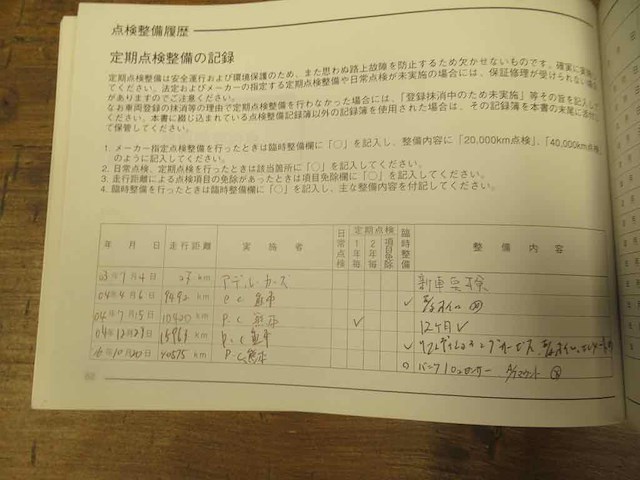 点検整備履歴
定期点検整備の記録
定期点検整備は安全運行および環境保護のため、また思わぬ路上故障を防止するため欠かせないものです。確実に実施し
てください。法定およびメーカーの指定する定期点検整備や日常点検が未実施の場合には、保証修理が受けられない場合
がありますのでご注意ください。
なお車両登録の抹消等の理由で定期点検整備を行わなかった場合には、「登録抹消中のため未実施」等その旨を記入し
てください。本書に綴じ込まれている点検整備記録簿以外の記録簿を使用された場合は、その記録簿を本書の末尾に添付
して保管してください。
1. メーカー指定点検整備を行ったときは臨時整備欄に「○」を記入し、整備内容に「20,000km点検」、「40,000km点検
のように記入してください。
2. 日常点検、定期点検を行ったときは該当箇所に「○」を記入してください。
3. 走行距離による点検項目の免除があったときは項目免除欄に「○」を記入してください。
4. 臨時整備を行ったときは臨時整備欄に「○」を記入し、主な整備内容を付記してください。
年 月 日 走行距離 実施者 日常点検 定期点検 1年毎 2年毎 項目免除 臨時整備 整備内容
03年7月4日 27 km アデル・カーズ 新車点検
04年4月6日 9492 km P.C ✓
04年7月15日 10420 km P.C ✓ 12ヶ月 ✓
04年12月29日 15969 km P.C ✓
年10月20日 20575 km P.C ○